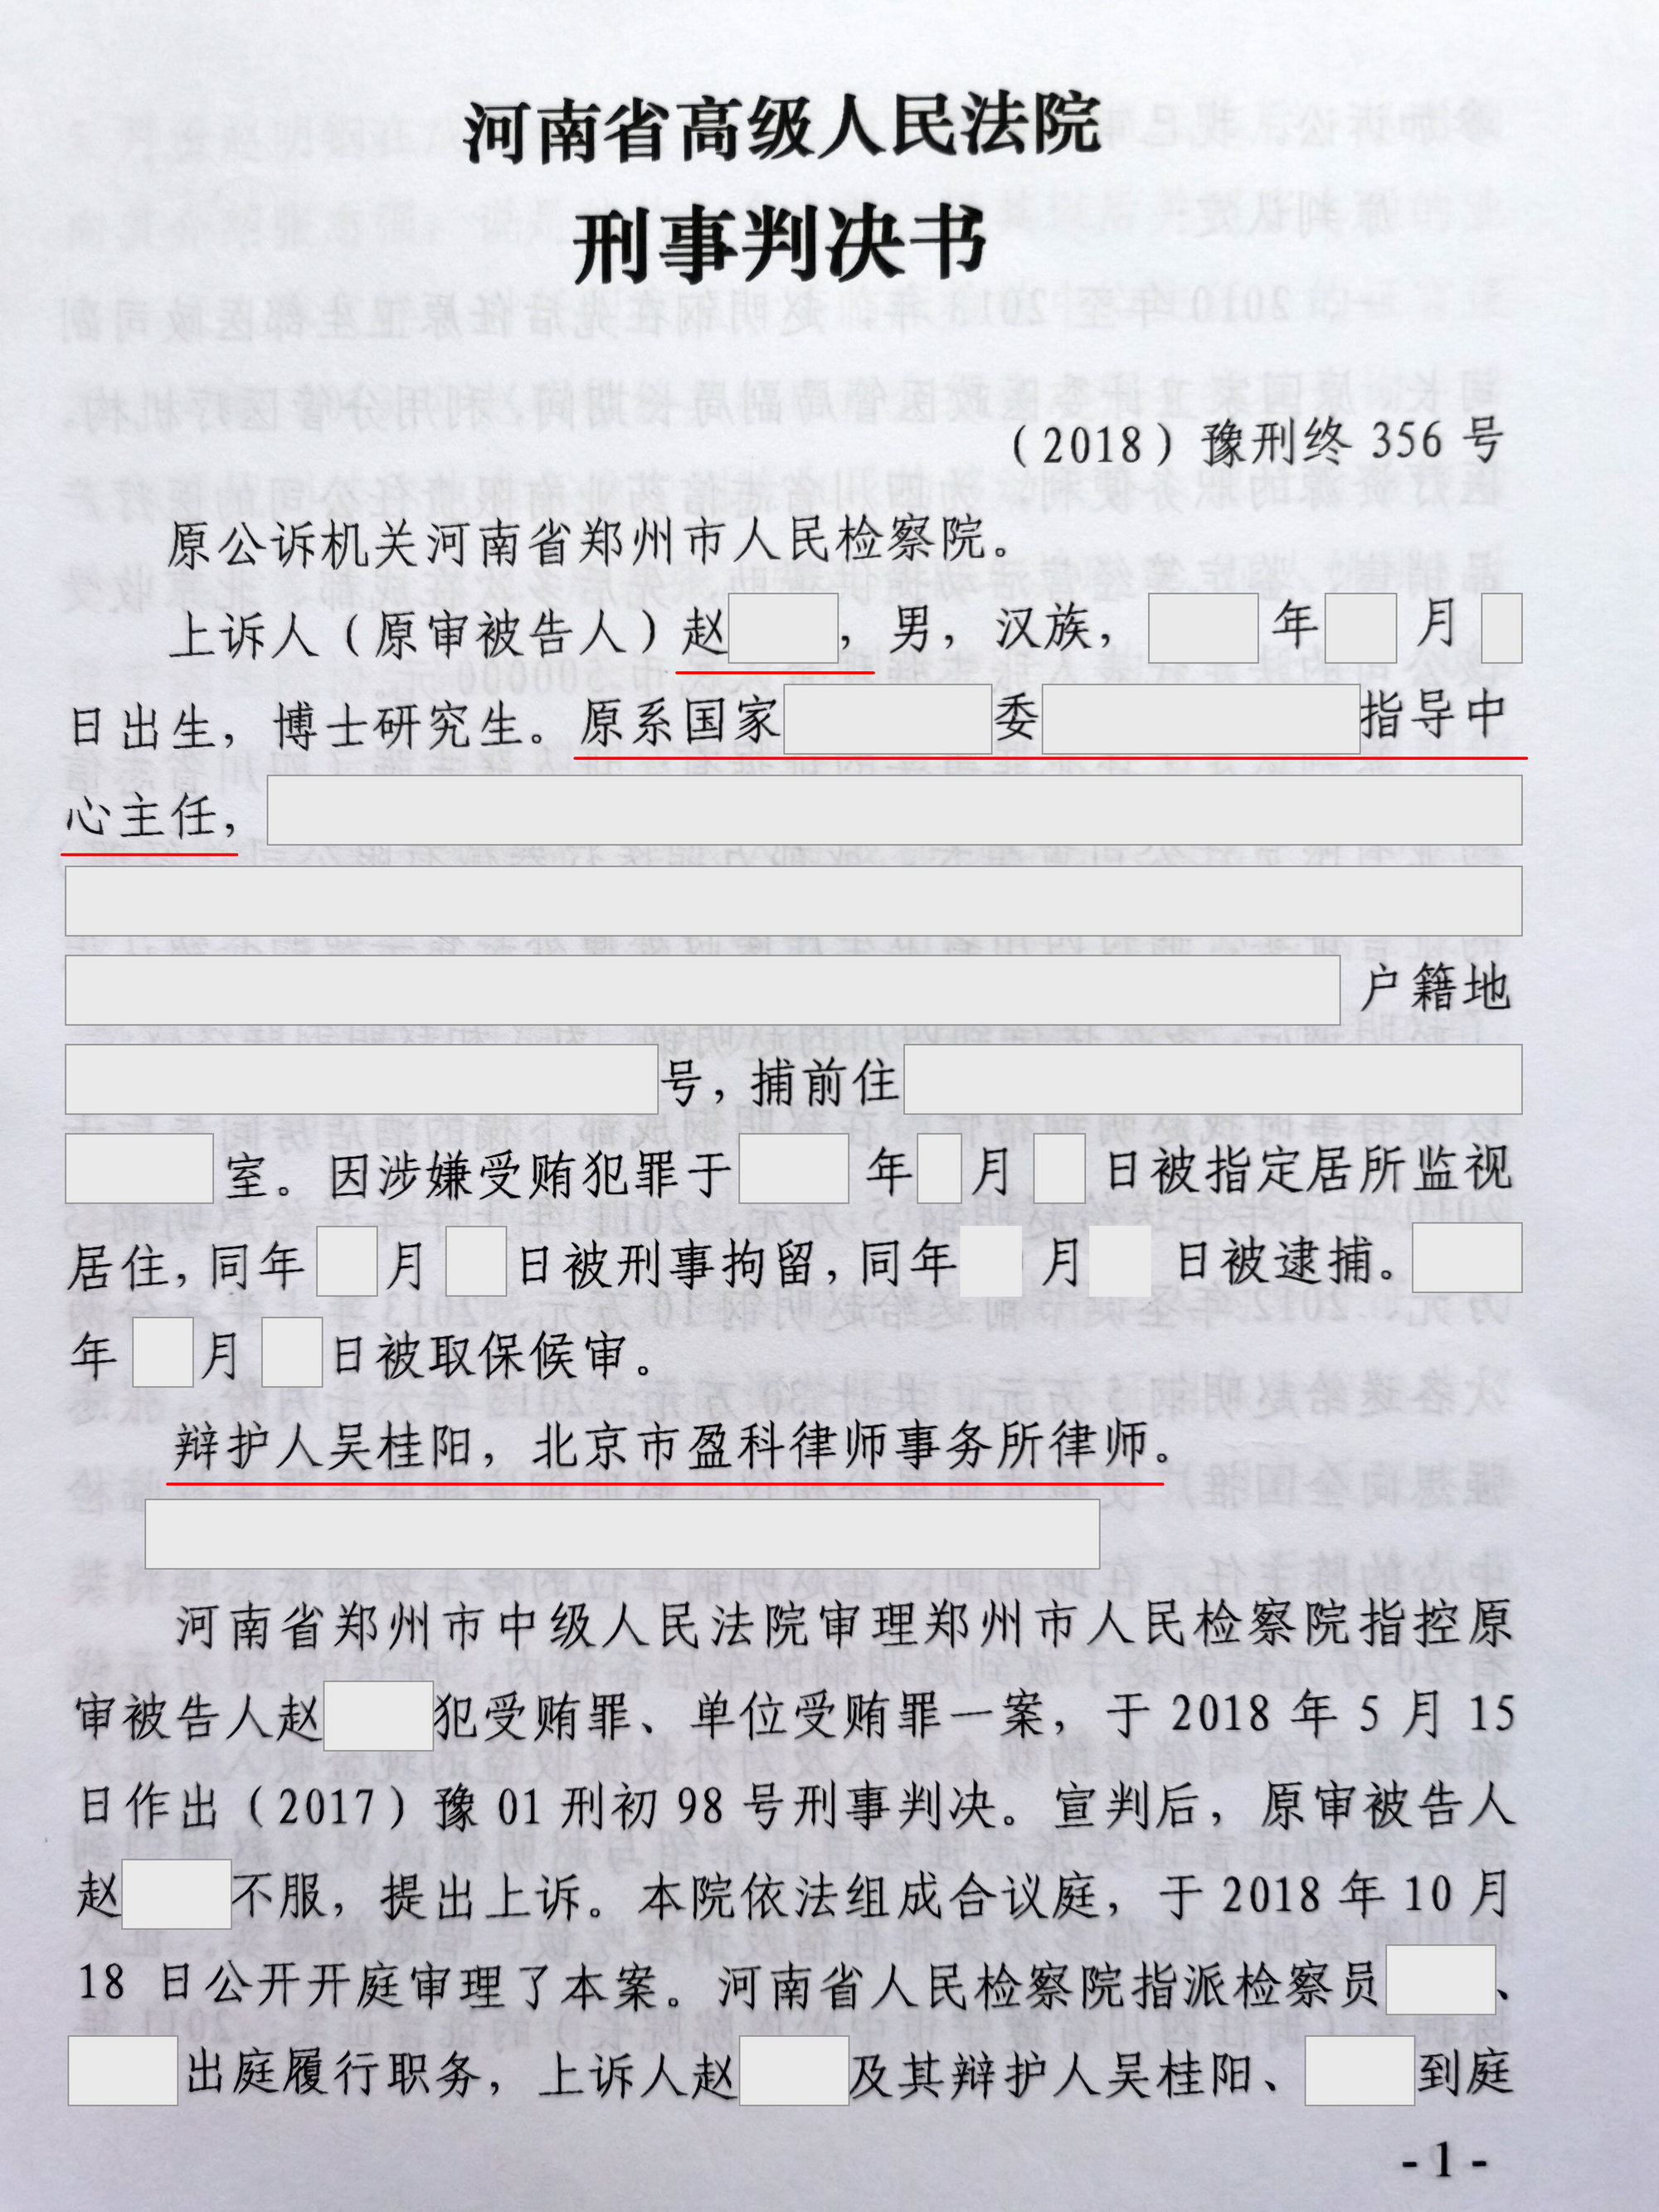 河南省高级人民法院
刑事判决书
（2018）豫刑终 356 号
原公诉机关河南省郑州市人民检察院。
上诉人（原审被告人）赵，男，汉族，年月
日出生，博士研究生。原系国家委指导中
心主任，
户籍地
号，捕前住
室。因涉嫌受贿犯罪于年月日被指定居所监视
居住，同年月日被刑事拘留，同年月日被逮捕。
年月日被取保候审。
辩护人吴桂阳，北京市盈科律师事务所律师。
河南省郑州市中级人民法院审理郑州市人民检察院指控原
审被告人赵犯受贿罪、单位受贿罪一案，于 2018 年 5 月 15
日作出（2017）豫 01 刑初 98 号刑事判决。宣判后，原审被告人
赵不服，提出上诉。本院依法组成合议庭，于 2018 年 10 月
18 日公开开庭审理了本案。河南省人民检察院指派检察员、
出庭履行职务，上诉人赵及其辩护人吴桂阳、到庭
- 1 -